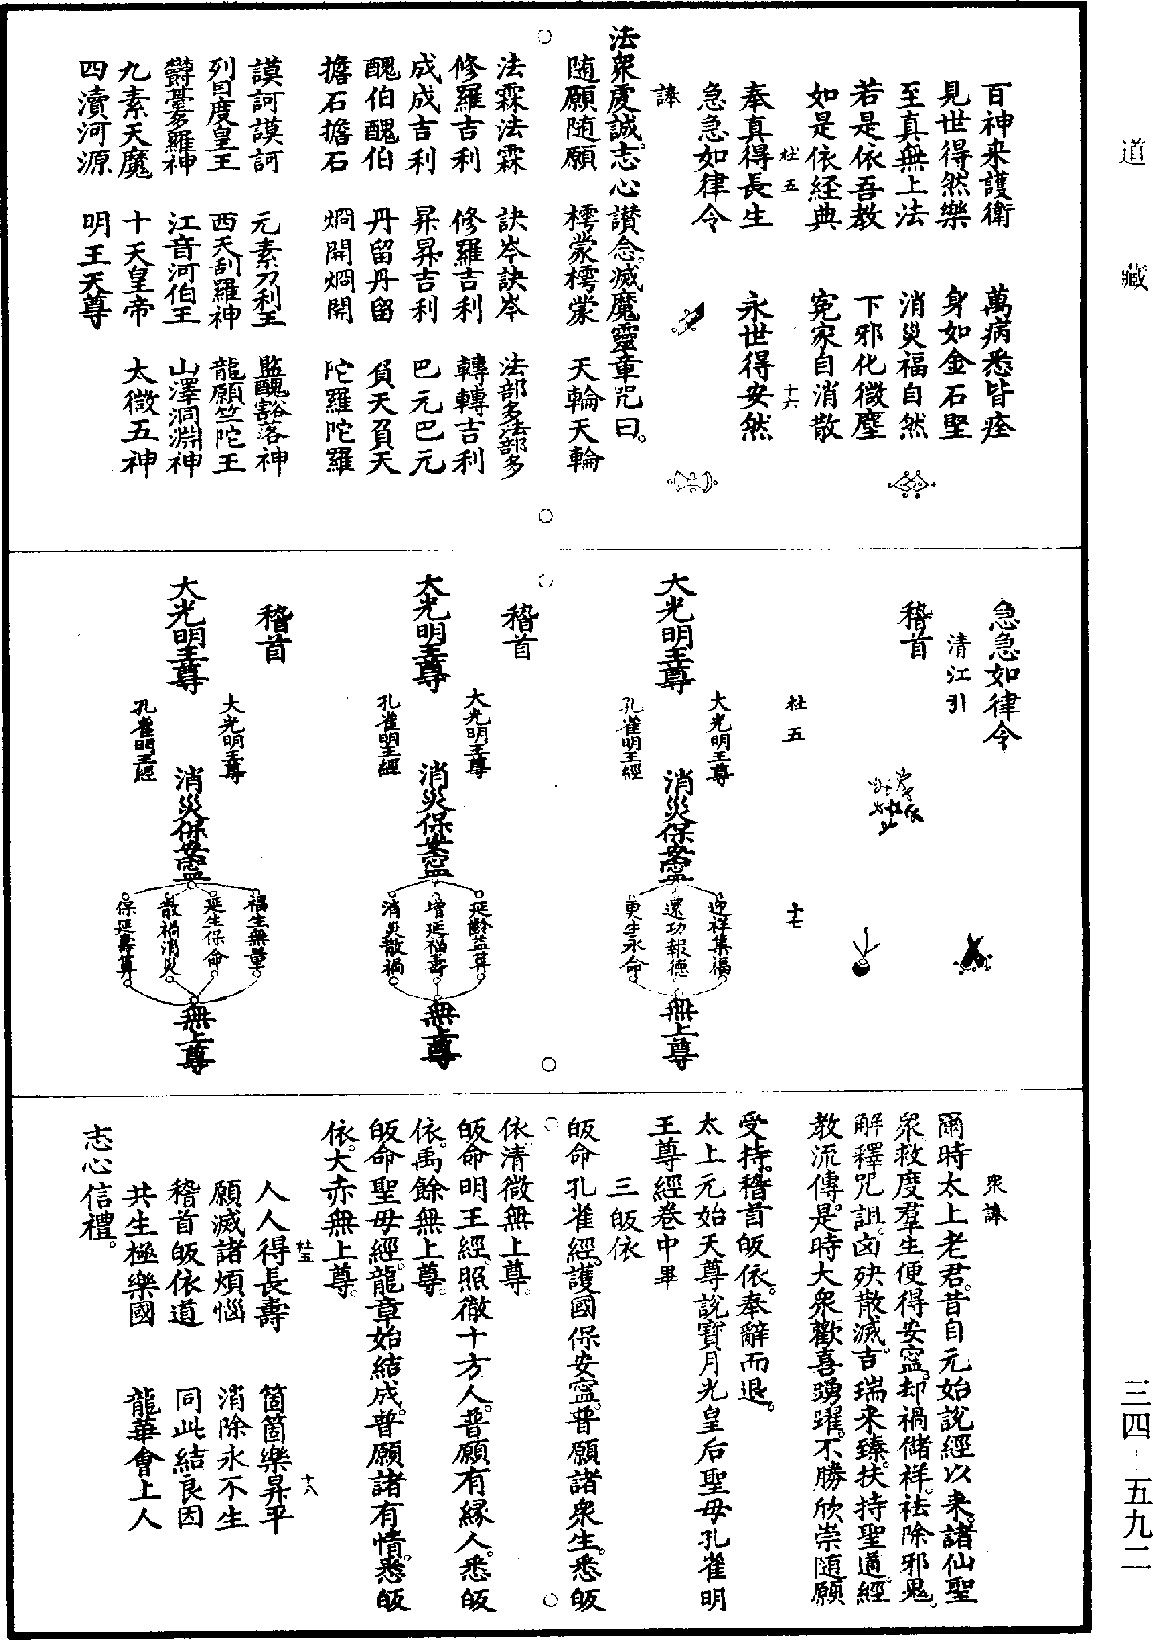 道藏
百神来護衛　萬病悉皆痊
見世得然樂　身如金石堅
至真無上法　消災福自然
若是依吾教　下邪化微塵
如是依經典　冤家自消散
杜五　十六
奉真得長生　永世得安然
急急如律令
諱
法衆虔誠。志心讃念。滅魔靈章咒曰。
随願随願　樗蒙樗蒙　天輪天輪
法霖法霖　訣岑訣岑　法部多法部多
修羅吉利　修羅吉利　轉轉吉利
成成吉利　昇昇吉利　巴元巴元
醜伯醜伯　丹留丹留　負天負天
擔石擔石　烱開烱開　陀羅陀羅
謨訶謨訶　元素刀利王　監醜豁落神
列曰度皇王　西天刮羅神　龍願竺陀王
欝羅神　江音河伯王　山澤洞淵神
九素天魔　十天皇帝　太微五神
四瀆河源　明王天尊
急急如律令
清江引
稽首
杜五　十七
大光明王尊
大光明王尊
孔雀明王經
消災保安寧
迎祥集福
還功報德
更生永命
無上尊
稽首
大光明王尊
大光明王尊
孔雀明王經
消災保安寧
延齡益算
增延福壽
消災散禍
無上尊
稽首
大光明王尊
大光明王尊
孔雀明王經
消災保安寧
福生無量
延生保命
散禍消災
保延壽算
無上尊
衆諱
爾時太上老君。昔自元始說經以来。諸仙聖
衆救度羣生便得安寧。却禍儲祥。祛除邪鬼。
解釋咒詛。凶殃散滅。吉瑞来臻。扶持聖道。經
教流傳。是時大衆歡喜踴躍。不勝欣崇随願
受持。稽首皈依。奉辭而退。
太上元始天尊說寶月光皇后聖母孔雀明
王尊經卷中畢
三皈依
皈命孔雀經。護國保安寧。普願諸衆生。悉皈
依清微無上尊。
皈命明王經。照徹十方人。普願有緣人。悉皈
依。禹餘無上尊。
皈命聖母經。龍章始結成。普願諸有情。悉皈
依。大赤無上尊。
杜五　十八
人人得長壽　箇箇樂昇平
願滅諸煩惱　消除永不生
稽首皈依道　同此結良因
共生極樂國　龍華會上人
志心信禮。
三四-五九二